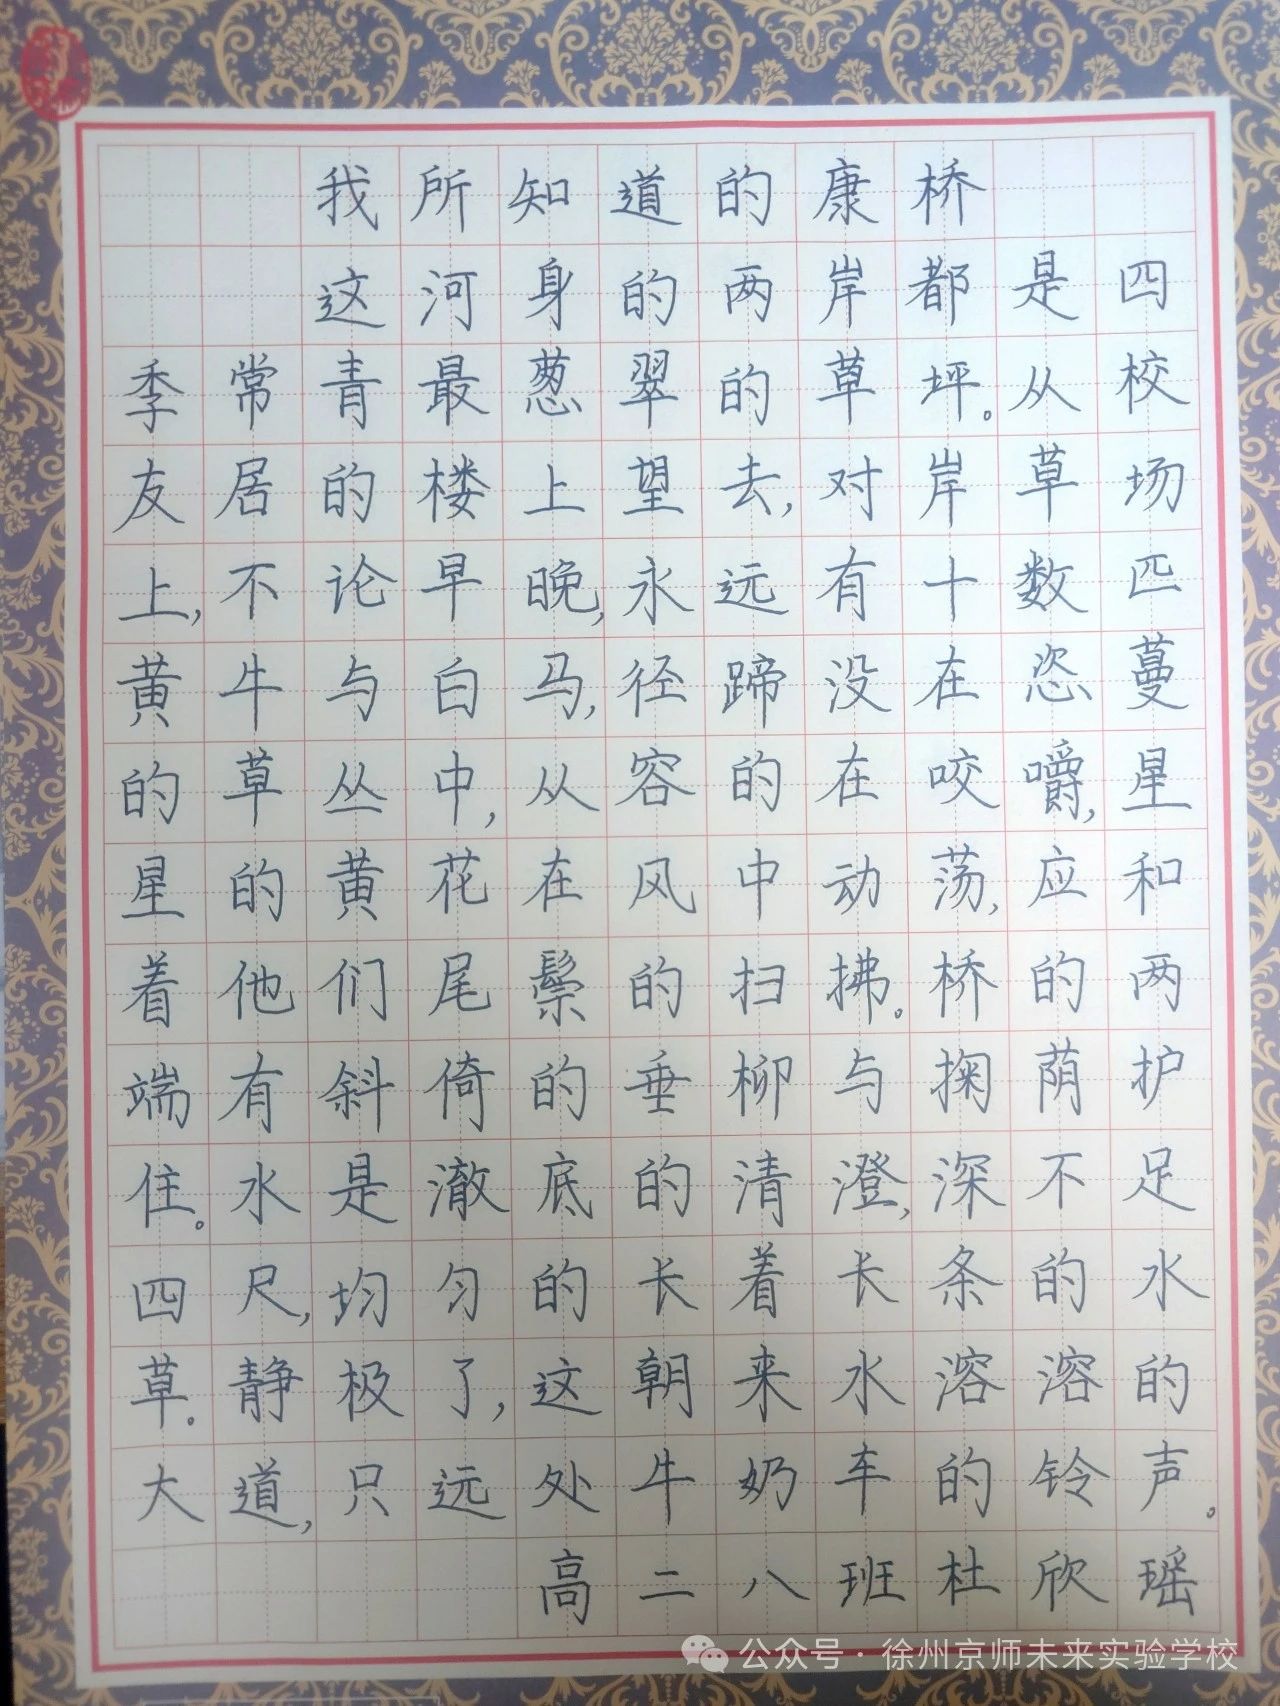 我所知道的康桥
这河身的两岸都是四
季常青最葱翠的草坪。从校
友居的楼上望去,对岸草场
上,不论早晚,永远有十数匹
黄牛与白马,径蹄没在恣蔓
的草丛中,从容的在咬嚼,星
星的黄花在风中动荡,应和
着他们尾鬃的扫拂。桥的两
端有斜倚的垂柳与掬荫护
住。水是澈底的清澄,深不足
四尺,均匀的长着长条的水
草。静极了,这朝来水溶溶的
大道,只远处牛奶车的铃声。
高二八班杜欣瑶
公众号·徐州京师未来实验学校